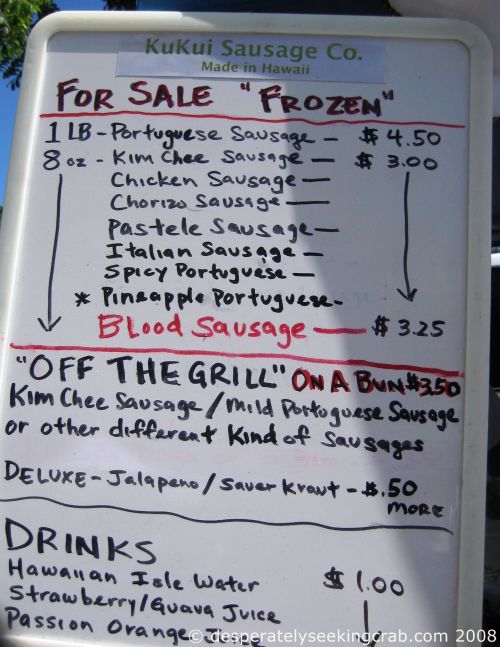 KuKui Sausage Co.
Made in Hawaii
FOR SALE "FROZEN"
1 LB - Portuguese Sausage — $ 4.50
8 oz - Kim Chee Sausage — $ 3.00
Chicken Sausage —
Chorizo Sausage —
Pastele Sausage —
Italian Sausage -
Spicy Portuguese -
* Pineapple Portuguese -
Blood Sausage — $ 3.25
"OFF THE GRILL" ON A BUN $3.50
Kim Chee Sausage / Mild Portuguese Sausage
or other different Kind of Sausages
DELUXE - Jalapeno / Sauer Kraut - $.50
MORE
DRINKS
Hawaiian Isle Water $ 1.00
Strawberry/Guava Juice
Passion Orange Juice
© desperatelyseekingcrab.com 2008